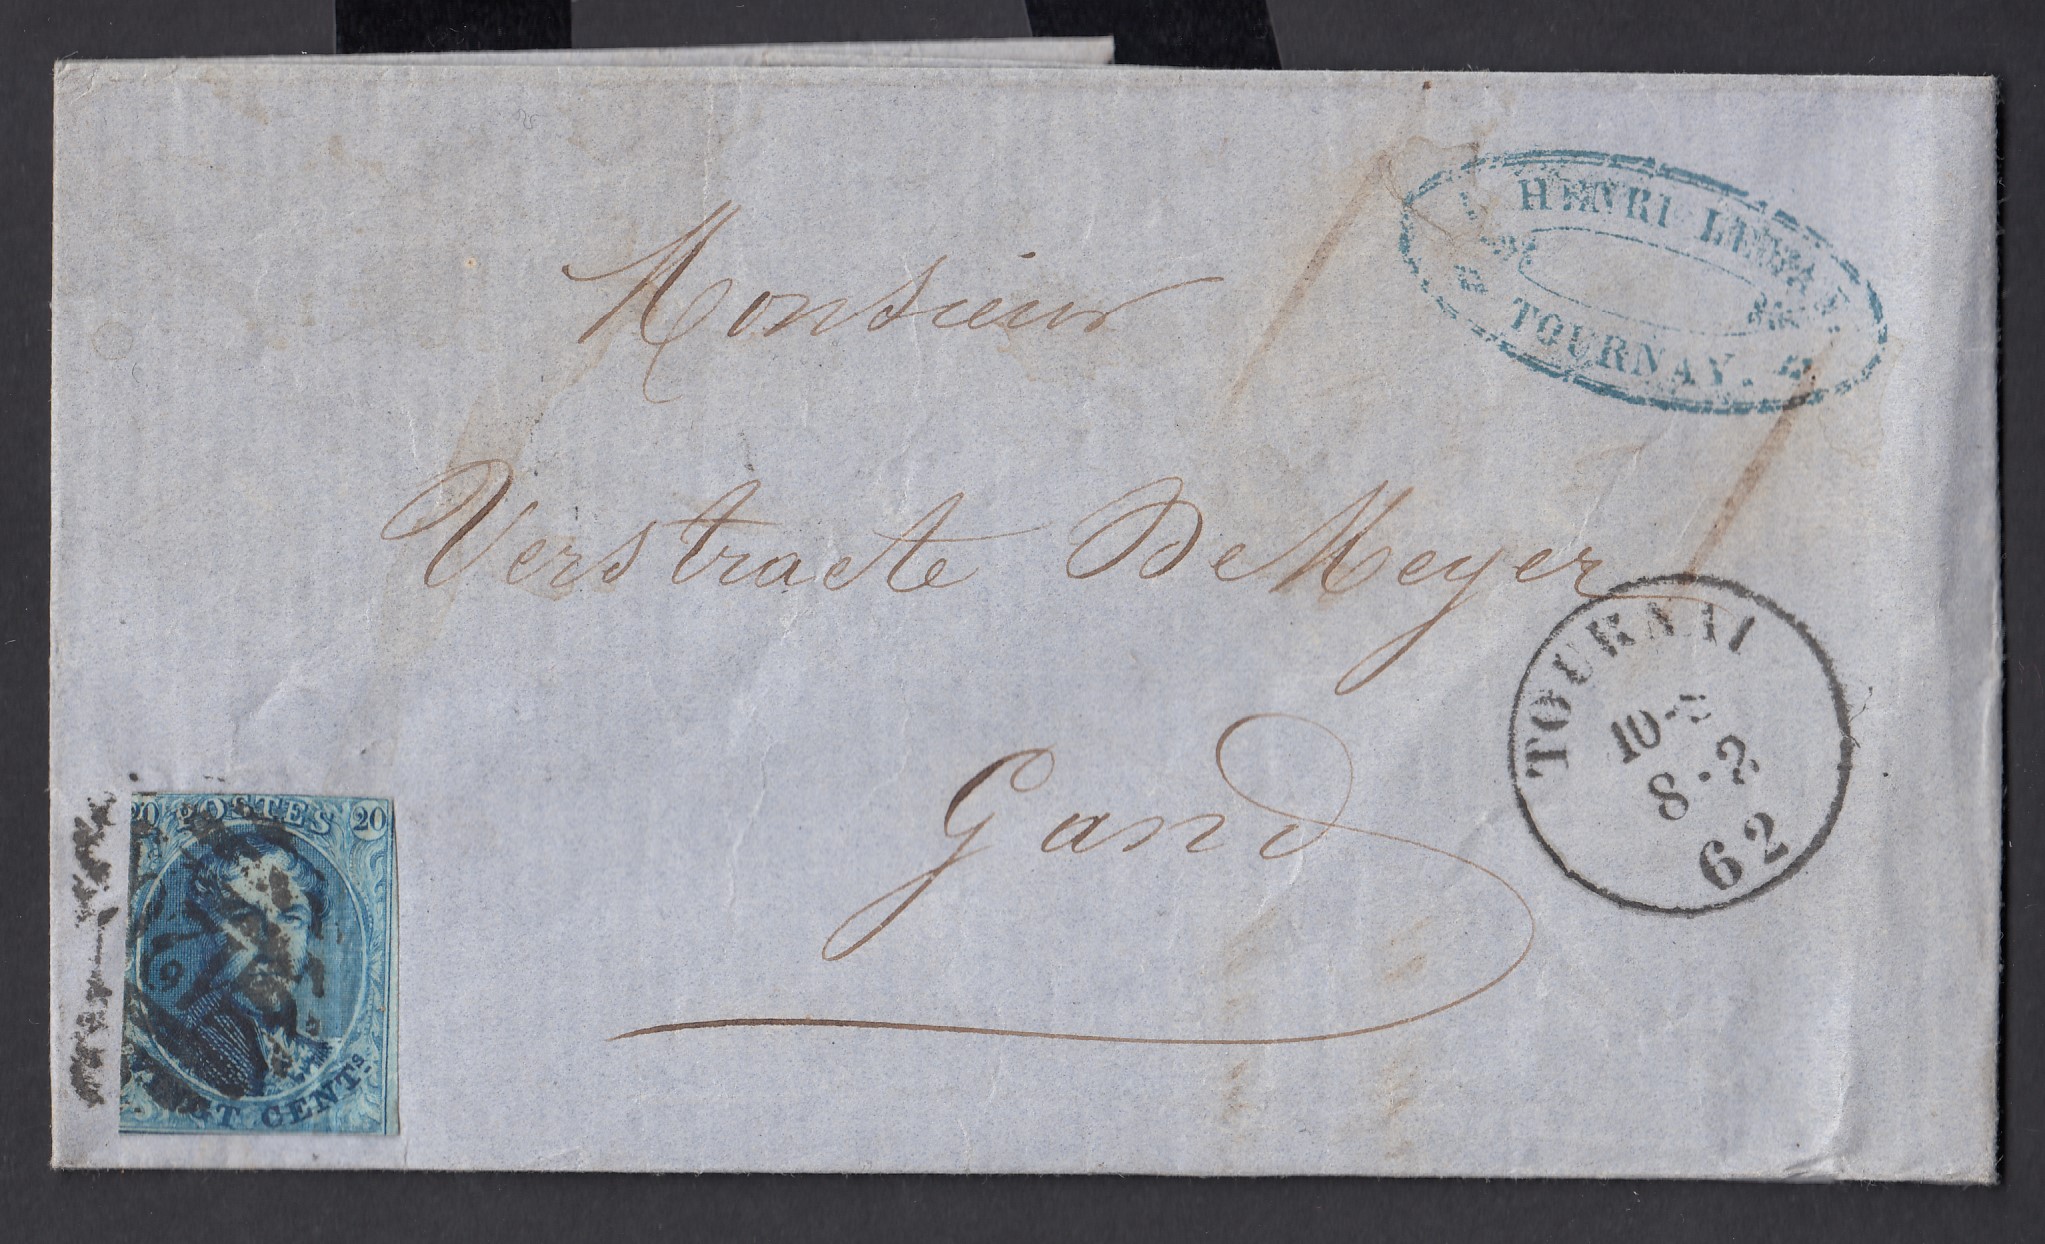 HENRI
TOURNAY.
Monsieur
Verstraete De Meyer
Gand
TOURNAI
8 - 2
62
20 POSTES 20
VINGT CENTS.